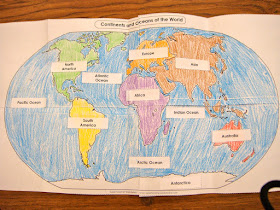 Continents and Oceans of the World
North
America
Europe
Asia
Atlantic
Ocean
Africa
Pacific Ocean
Indian Ocean
South
America
Australia
Arctic Ocean
Antarctica